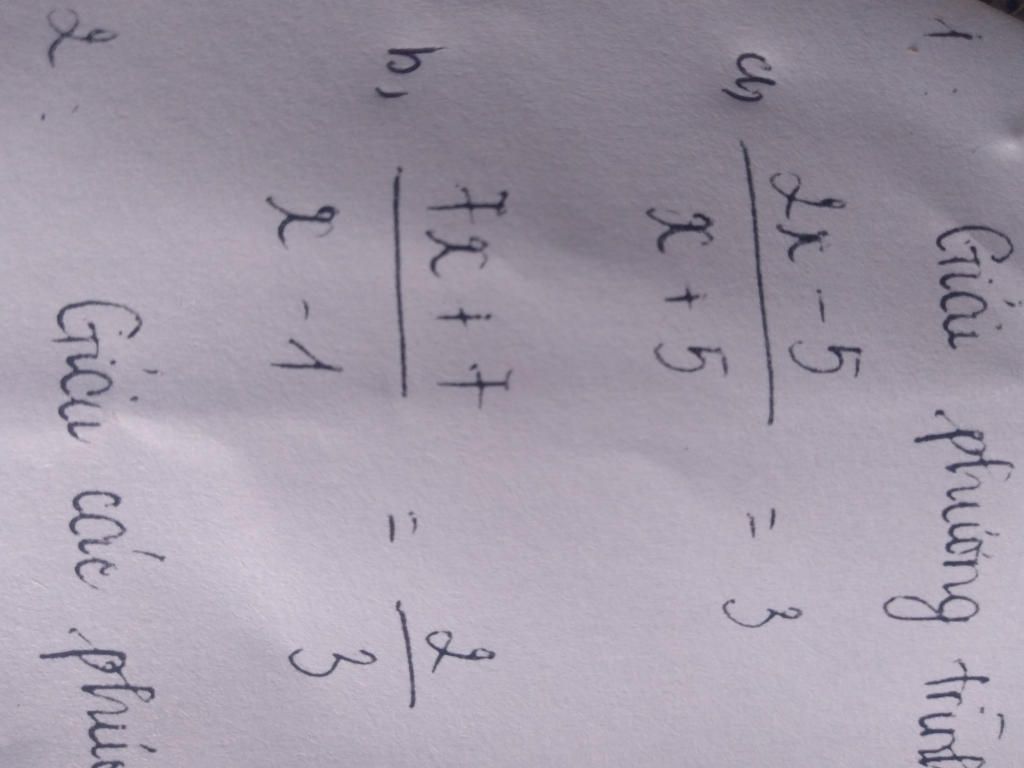 1. Giải phương trình
a, \frac{2x - 5}{x + 5} = 3
b, \frac{7x + 7}{x - 1} = \frac{2}{3}
2. Giải các